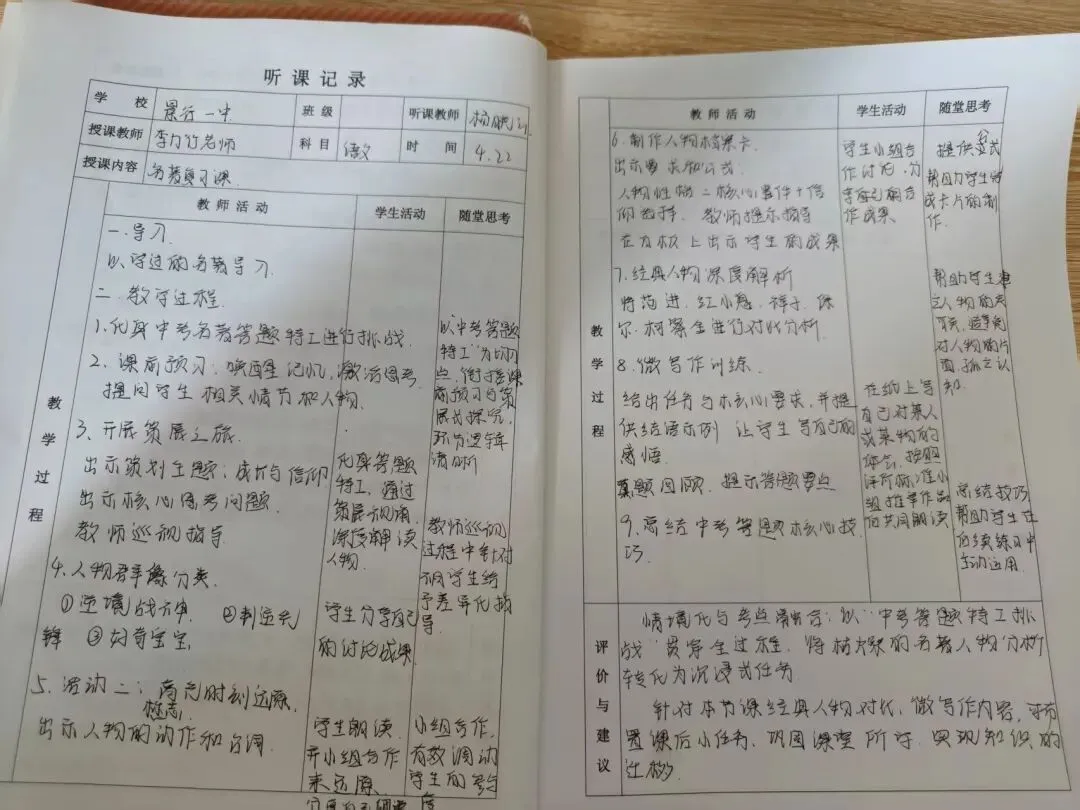 听课记录
学 校 景行一中 班级 听课教师
授课教师 老师 科目 语文 时 间 4.22
授课内容 名著复习课
教师活动 学生活动 随堂思考
教学过程
一.导入
以学过的名著导入.
二.教学过程.
1.化身中考名著答题特工进行挑战.
2.课前预习,唤醒记忆,激活思考.
提问学生相关情节和人物.
3、开展策展之旅.
出示策划主题:成长与信仰
出示核心思考问题.
教师巡视指导.
4.人物群像分类.
①逆境战神 ②叛逆先
锋 ③好奇宝宝
5.活动二:高光时刻还原.
出示人物的动作和台词
化身答题
特工,通过
策展视角,
深度解读
人物.
学生分享自己
的讨论成果.
学生朗读
并小组合作
来还原.
以"中考答题
特工"为切入
点,衔接课
前预习与策
展式探究,
环为逻辑
清晰
教师巡视
过程中针对
不同学生给
予差异化指
导.
小组合作,
有效调动
学生的参与
度
教师活动 学生活动 随堂思考
教学过程
6.制作人物档案卡.
出示要求和公式.
人物性格=核心事件+信
仰选择. 教师提示指导
在方板上出示学生的成果
7.经典人物深度解析
将范进、红小鬼、祥子、保
尔.柯察金进行对比分析.
8.微写作训练.
给出任务与核心要求,并提
供结语示例 让学生写自己的
感悟.
真题回顾.提示答题要点
9.总结中考答题核心技
巧.
学生小组合
作讨论.分
享自己的合
作成果
在纸上写
自己对某人
或某物的
体会,按照
评价标准小
组推举作品
并共同朗读
提供公式
帮助学生完
成卡片的制
作.
帮助学生建
立人物的关
联,避免
对人物的片
面、孤立认
知.
总结技巧
帮助学生在
后续练习中
主动运用.
评价与建议
情境化与考点融合:以"中考答题特工挑
战"贯穿全过程.将枯燥的名著人物分析
转化为沉浸式任务.
针对本节课经典人物对比、微写作内容,可布
置课后小任务、巩固课堂所学.实现知识的
迁移.